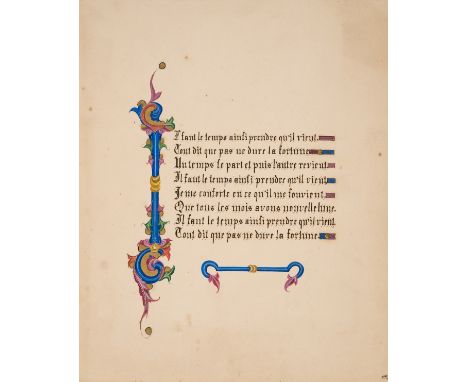 Il faut le temps ainsi prendre qu'il vient.
Tout dit que pas ne dure la fortune.
Un temps se part et puis l'autre revient.
Il faut le temps ainsi prendre qu'il vient.
Je me conforte en ce qu'il me souvient.
Que tous les mois avons nouvelle lune.
Il faut le temps ainsi prendre qu'il vient.
Tout dit que pas ne dure la fortune.